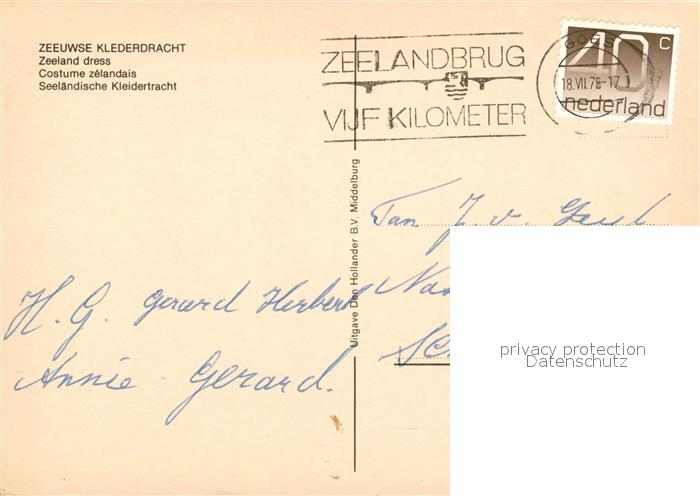 ZEEUWSE KLEDERDRACHT
Zeeland dress
Costume zélandais
Seeländische Kleidertracht
ZEELANDBRUG
VIJF KILOMETER
GOES
18.VII.78-17
40 c
nederland
Uitgave Den Hollander B.V. Middelburg
H. G. Gerard Herbert
Annie Gerard.
Fam J. v.
privacy protection
Datenschutz